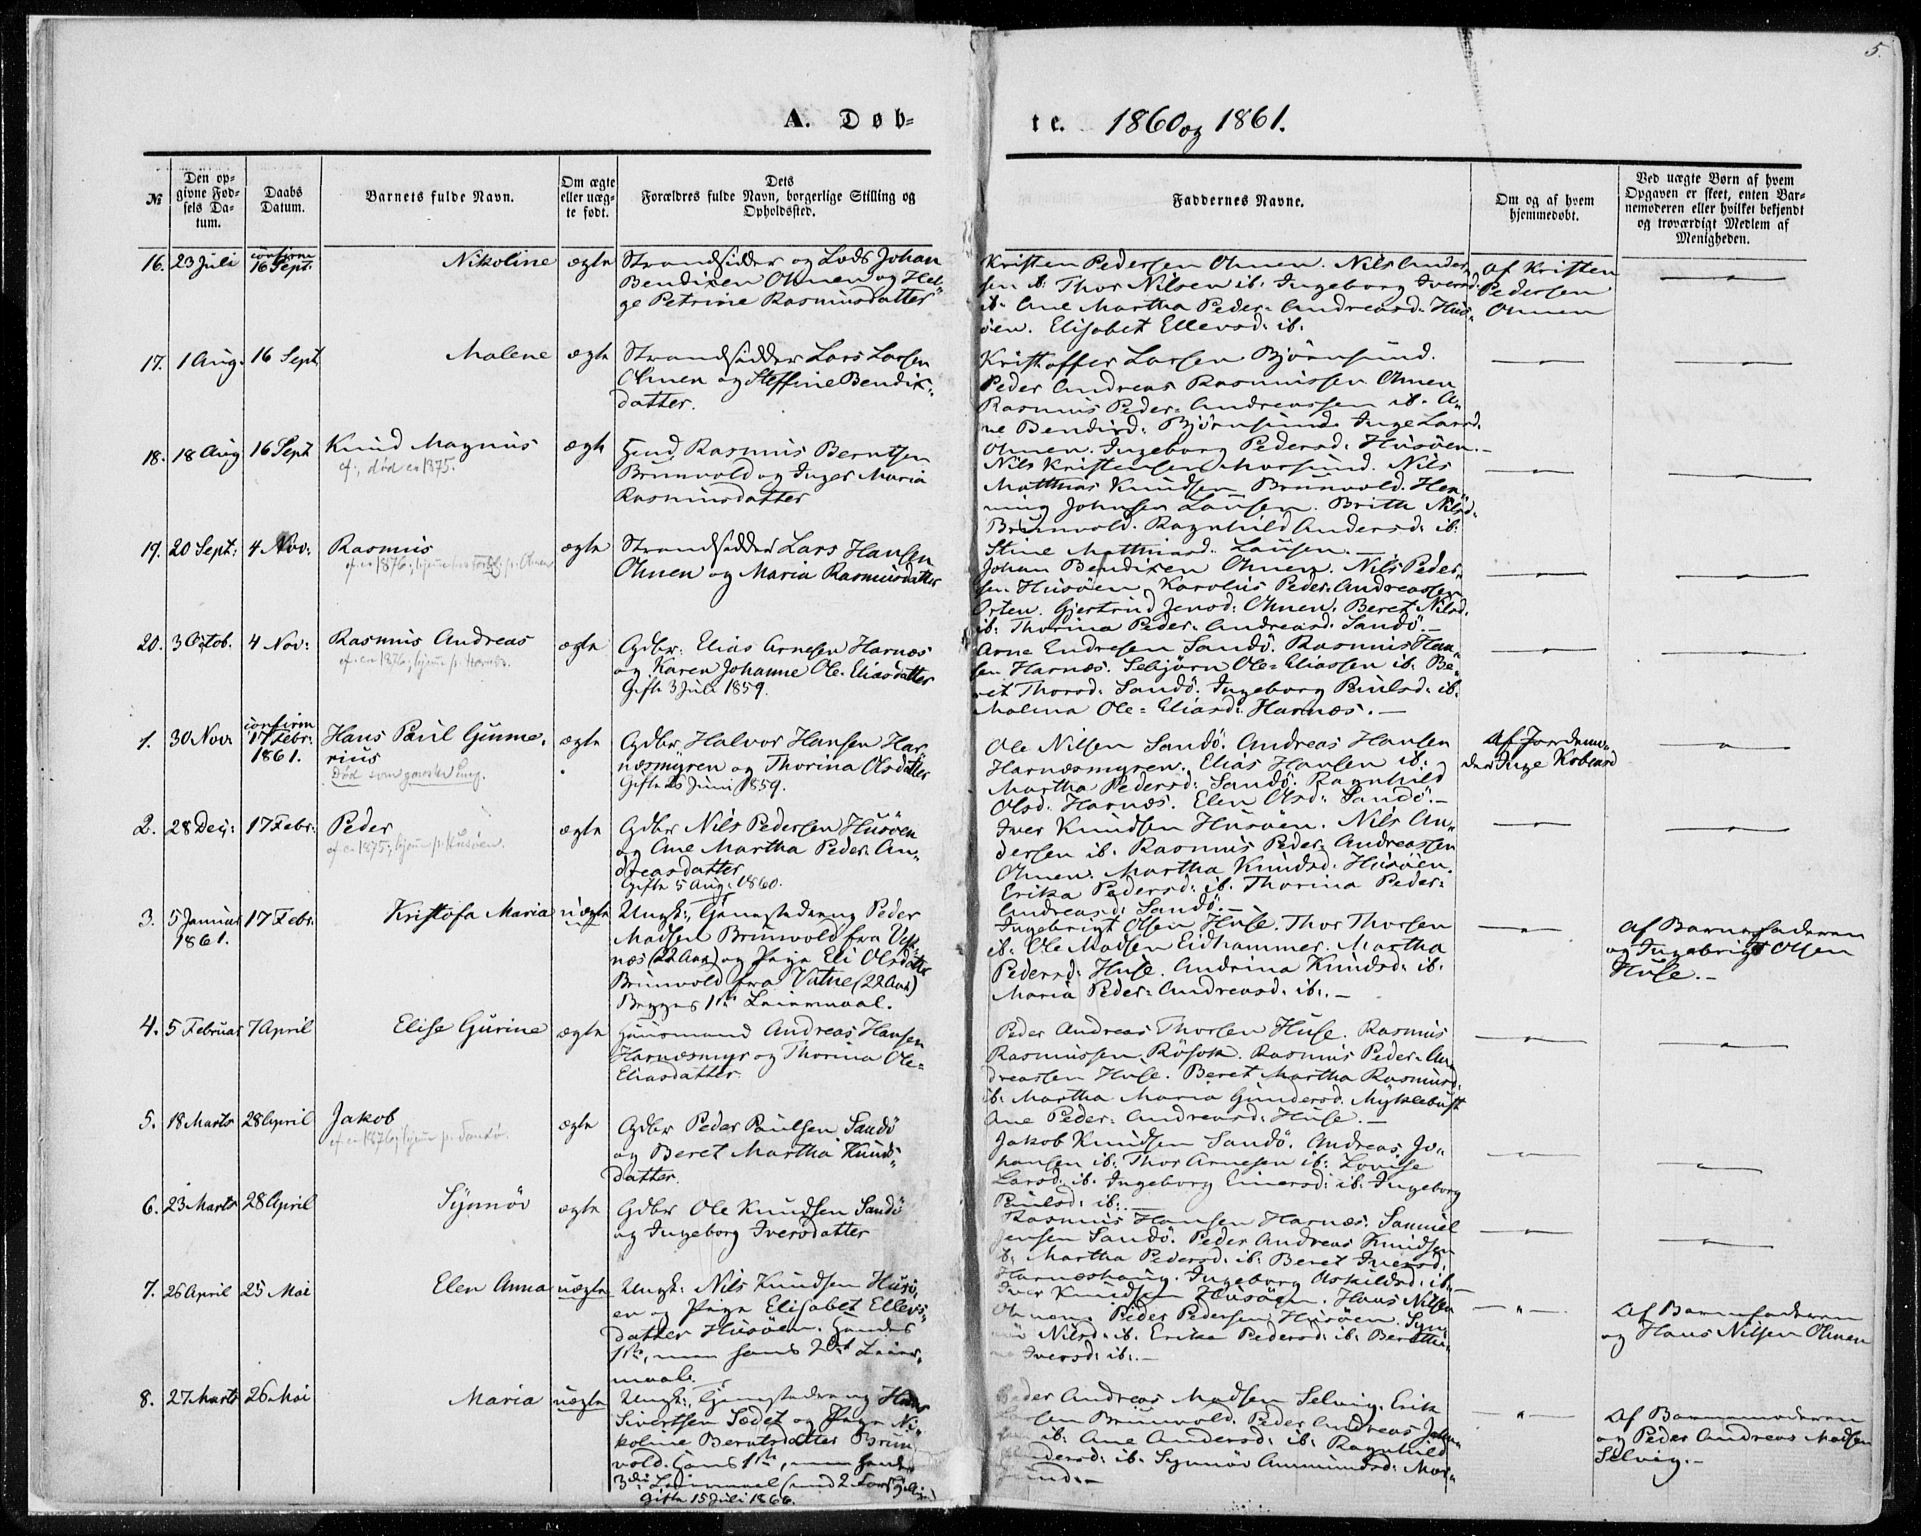 5.
A. Døb-
te. 1860 og 1861.
№
Den op-
givne Fød-
sels Da-
tum.
Daabs
Datum.
Barnets fulde Navn.
Om ægte
eller uæg-
te født.
Dets
Forældres fulde Navn, borgerlige Stilling og
Opholdssted.
Faddernes Navne.
Om og af hvem
hjemmedøbt.
Ved uægte Børn af hvem
Opgaven er skeet, enten Bar-
nemoderen eller hvilket bekjendt
og troværdigt Medlem af
Menigheden.
16. 23 Juli
16 Sept.
Nikoline
ægte
Strandsidder og Lods Johan
Bendixen Ohnen og Hel-
ge Petrine Rasmusdatter
Kristen Pedersen Ohnen. Nils Ander-
sen ib. Thor Nilsen ib. Ingeborg Iversd.
ib. Ane Martha Peder-Andreasd. Hus-
öen. Elisabet Ellevsd. ib.
Af Kristen
Pedersen
Ohnen
17. 1 Aug. 16 Sept
Malene
ægte
Strandsidder Lars Larsen
Ohnen og Steffine Bendix-
datter.
Kristoffer Larsen Björnsund.
Peder Andreas Rasmussen Ohnen
Rasmus Peder-Andreassen ib. A-
ne Bendixd. Björnsund. Inge Larsd.
Ohnen. Ingeborg Pedersd. Husöen.
18. 18 Aug 16 Sept
Knud Magnus
død
1875.
ægte
Rasmus Berntsen
Brunvold og Inger Maria
Rasmusdatter
Nils Kristensen Morsund. Nils
Matthias Knudsen Brunvold. Hen-
ning Johnsen Lausen. Britte Nilsd.
Brunvold. Ragnhild Andersd. ib.
Stine Matthiasd. Lausen.
19. 20 Sept: 4 Nov:
Rasmus
ægte
Strandsidder Lars Hansen
Ohnen og Maria Rasmusdatter
Johan Bendixen Ohnen. Nils Peder-
sen Husöen. Karolus Peder-Andreassen
Orten. Gjertrud Jensd: Ohnen. Beret Nilsd.
ib: Thorina Peder-Andreasd. Sandö.
20. 3 Octob. 4 Nov:
Rasmus Andreas
ægte
Gdbr: Elias Arnesen Harnæs
og Karen Johanne Ole-Eliasdatter
Gifte 3 Juli 1859.
Arne Endresen Sandö. Rasmus Han-
sen Harnæs. Sebjörn Ole-Eliassen ib. Be-
ret Thorsd: Sandö. Ingeborg Paulsd: ib.
Malena Ole-Eliasd: Harnæs.
1. 30 Nov.
confirm
17 Febr:
1861.
Hans Paul Gunne-
rius
Død som ganske ung.
ægte
Gdbr Halvor Hansen Har-
næsmyren og Thorina Olsdatter
Gifte 26 Juni 1859.
Ole Nilsen Sandö. Andreas Hansen
Harnæsmyren. Elias Hansen ib:
Martha Pedersd: Sandö. Ragnhild
Olsd. Harnæs. Elen Olsd: Sandö.
Af Jordemo-
der Inge
2. 28 Dec: 17 Febr:
Peder
ægte
Gdbr Nils Pedersen Husöen
og Ane Martha Peder-An-
dreasdatter
Gifte 5 Aug: 1860.
Iver Knudsen Husöen. Nils An-
dersen ib. Rasmus Peder-Andreassen
Ohnen. Martha Knudsd. Husöen.
Erika Pedersd: ib. Thorina Peder-
Andreasd: Sandö.
3. 5 Januar
1861.
17 Febr:
Kristofa Maria
uægte
Ungk:, Tjenestedreng Peder
Madsen Brunvold fra Vest-
næs (22 Aar) og Pige Eli Olsdatter
Brunvold fra Vatne (22 Aar)
Begges 1ste Leiermaal.
Ingebrigt Olsen Huse. Thor Thorsen
ib. Ole Madsen Eidhammer. Martha
Pedersd: Huse. Andrina Knudsd: ib.
Maria Peder-Andreasd. ib.
Af Barnefaderen
og Ingebrigt Olsen
Huse.
4. 5 Februar 7 April
Elise Gurine
ægte
Huusmand Andreas Hansen
Harnæsmyr og Thorina Ole-
Eliasdatter.
Peder Andreas Thorsen Huse. Rasmus
Rasmussen Rösok. Rasmus Peder-An-
dreassen Huse. Beret Martha Rasmusd.
ib. Martha Maria Gundersd. Myklebust
Ane Peder-Andreasd: Huse.
5. 18 Marts 28 April
Jakob
ægte
Gdbr Peder Paulsen Sandö
og Beret Martha Knuds-
datter.
Jakob Knudsen Sandö. Andreas Jo-
hansen ib: Thor Arnesen ib: Lovise
Larsd. ib. Ingeborg Einersd: ib. Ingeborg
Paulsd: ib.
6. 23 Marts 28 April
Synnöv
ægte
Gdbr Ole Knudsen Sandö
og Ingeborg Iversdatter
Rasmus Hansen Harnæs. Samuel
Jensen Sandö. Peder Andreas Knudsen
ib. Martha Pedersd: ib. Beret Iversd.
Harnæshaug. Ingeborg Askildsd: ib.
7. 26 April 25 Mai
Elen Anna
uægte
Ungk: Nils Knudsen Husö-
en og Pige Elisabet Ellevs-
datter Husöen. Hendes
1ste, men hans 2det Leier-
maal.
Iver Knudsen Husöen. Hans Nilsen
Ohnen. Peder Pedersen Husöen. Syn-
növ Nilsd: ib. Erika Pedersd: ib.
Iversd: ib.
Af Barnefaderen
og Hans Nilsen Ohnen
8. 27 Marts 26 Mai
Maria
uægte
Ungk:, Tjenestedreng Hans
Sivertsen Sædet og Pige Ni-
koline Berntsdatter Brun-
vold. Hans 1ste, men hendes
3die Leiermaal
Gifte 15 Juli 1866.
Peder Andreas Madsen Selvig. Erik
Brunvold. Peder Andreas
ib. Ane Andersd: ib. Ragnhild
Andersd: ib. Synnöv Amundsd: Mor-
sund.
Af Barnemoderen
og Peder Andreas Madsen
Selvig.